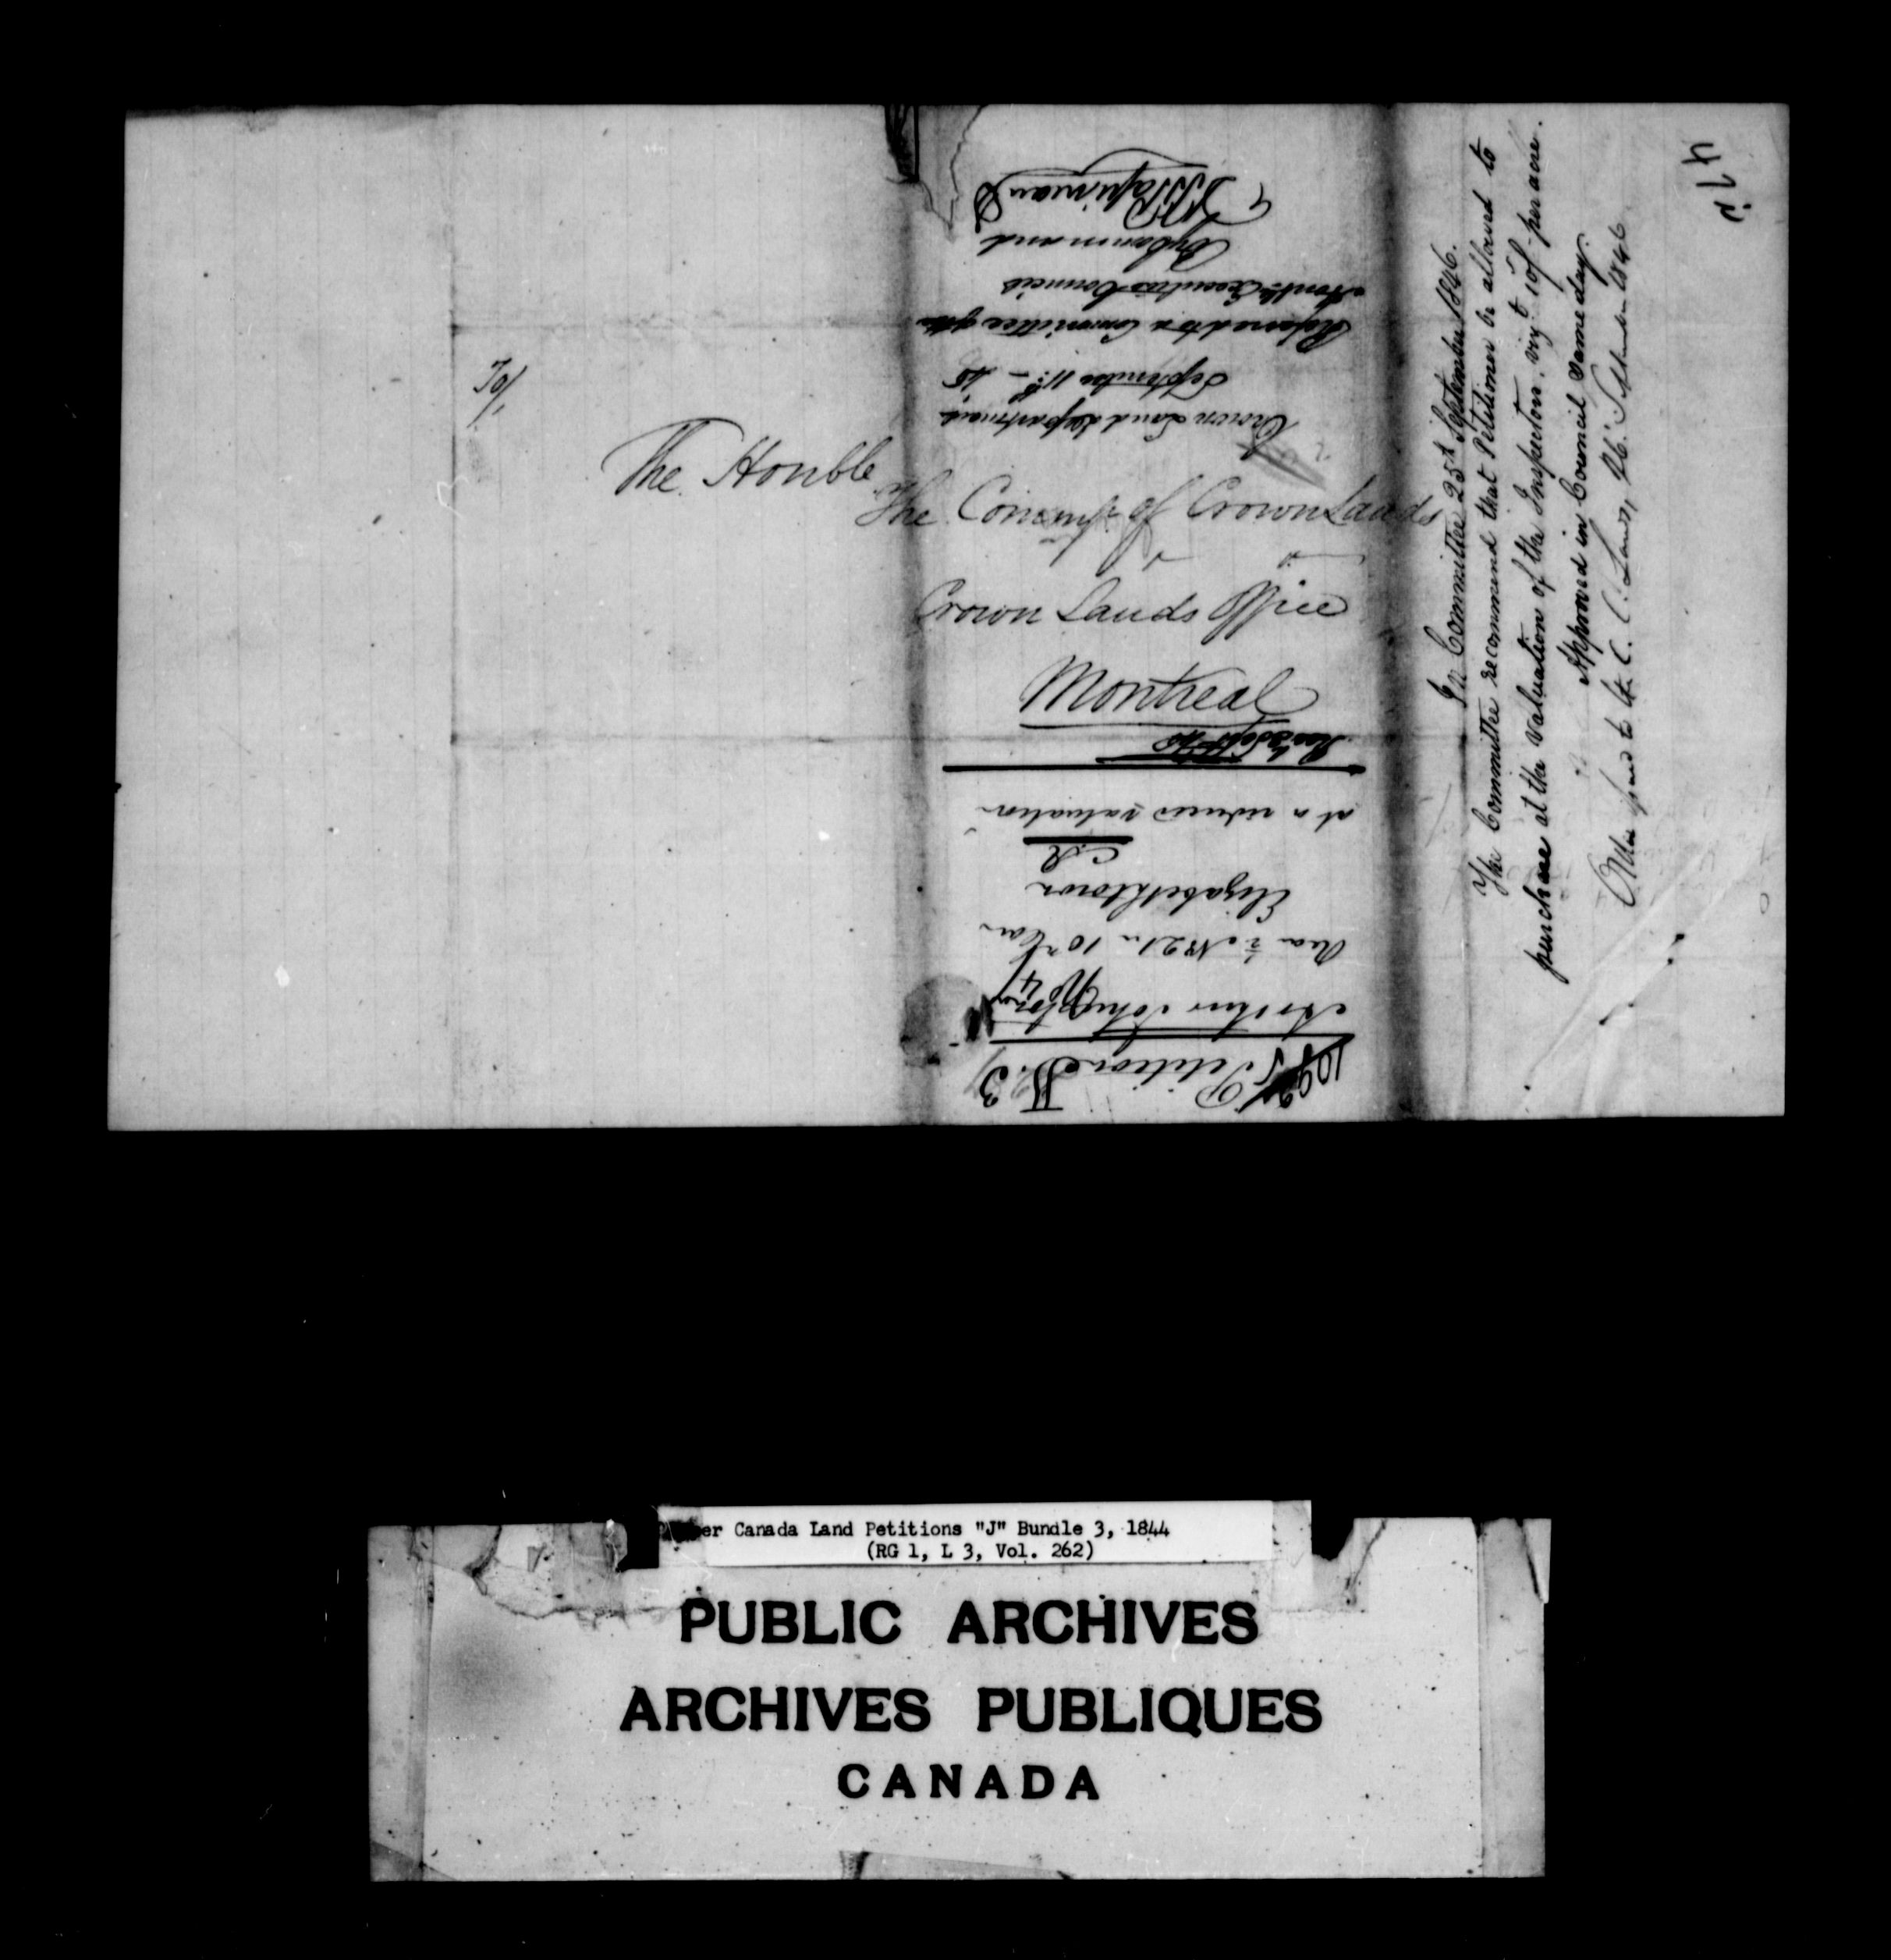 To/
The Honble
The Commr of Crown Lands
Crown Lands Office
Montreal
Petition
J. 3
Arthur
No 4
Rear ½ No 21 in 10th Con
Elizabethtown
at a reduced valuation
Crown Land Department
September 11th
Referred to a Committee of the
Honble Executive Council
By Command
D B Papineau
In Committee 25th September 1846.
The Committee recommend that Petitioner be allowed to
purchase at the valuation of the Inspector. vizt 10/- per acre.
Approved in Council same day.
to C. C. Lands, 26 September 1846
Upper Canada Land Petitions "J" Bundle 3, 1844
(RG 1, L 3, Vol. 262)
PUBLIC ARCHIVES
ARCHIVES PUBLIQUES
CANADA